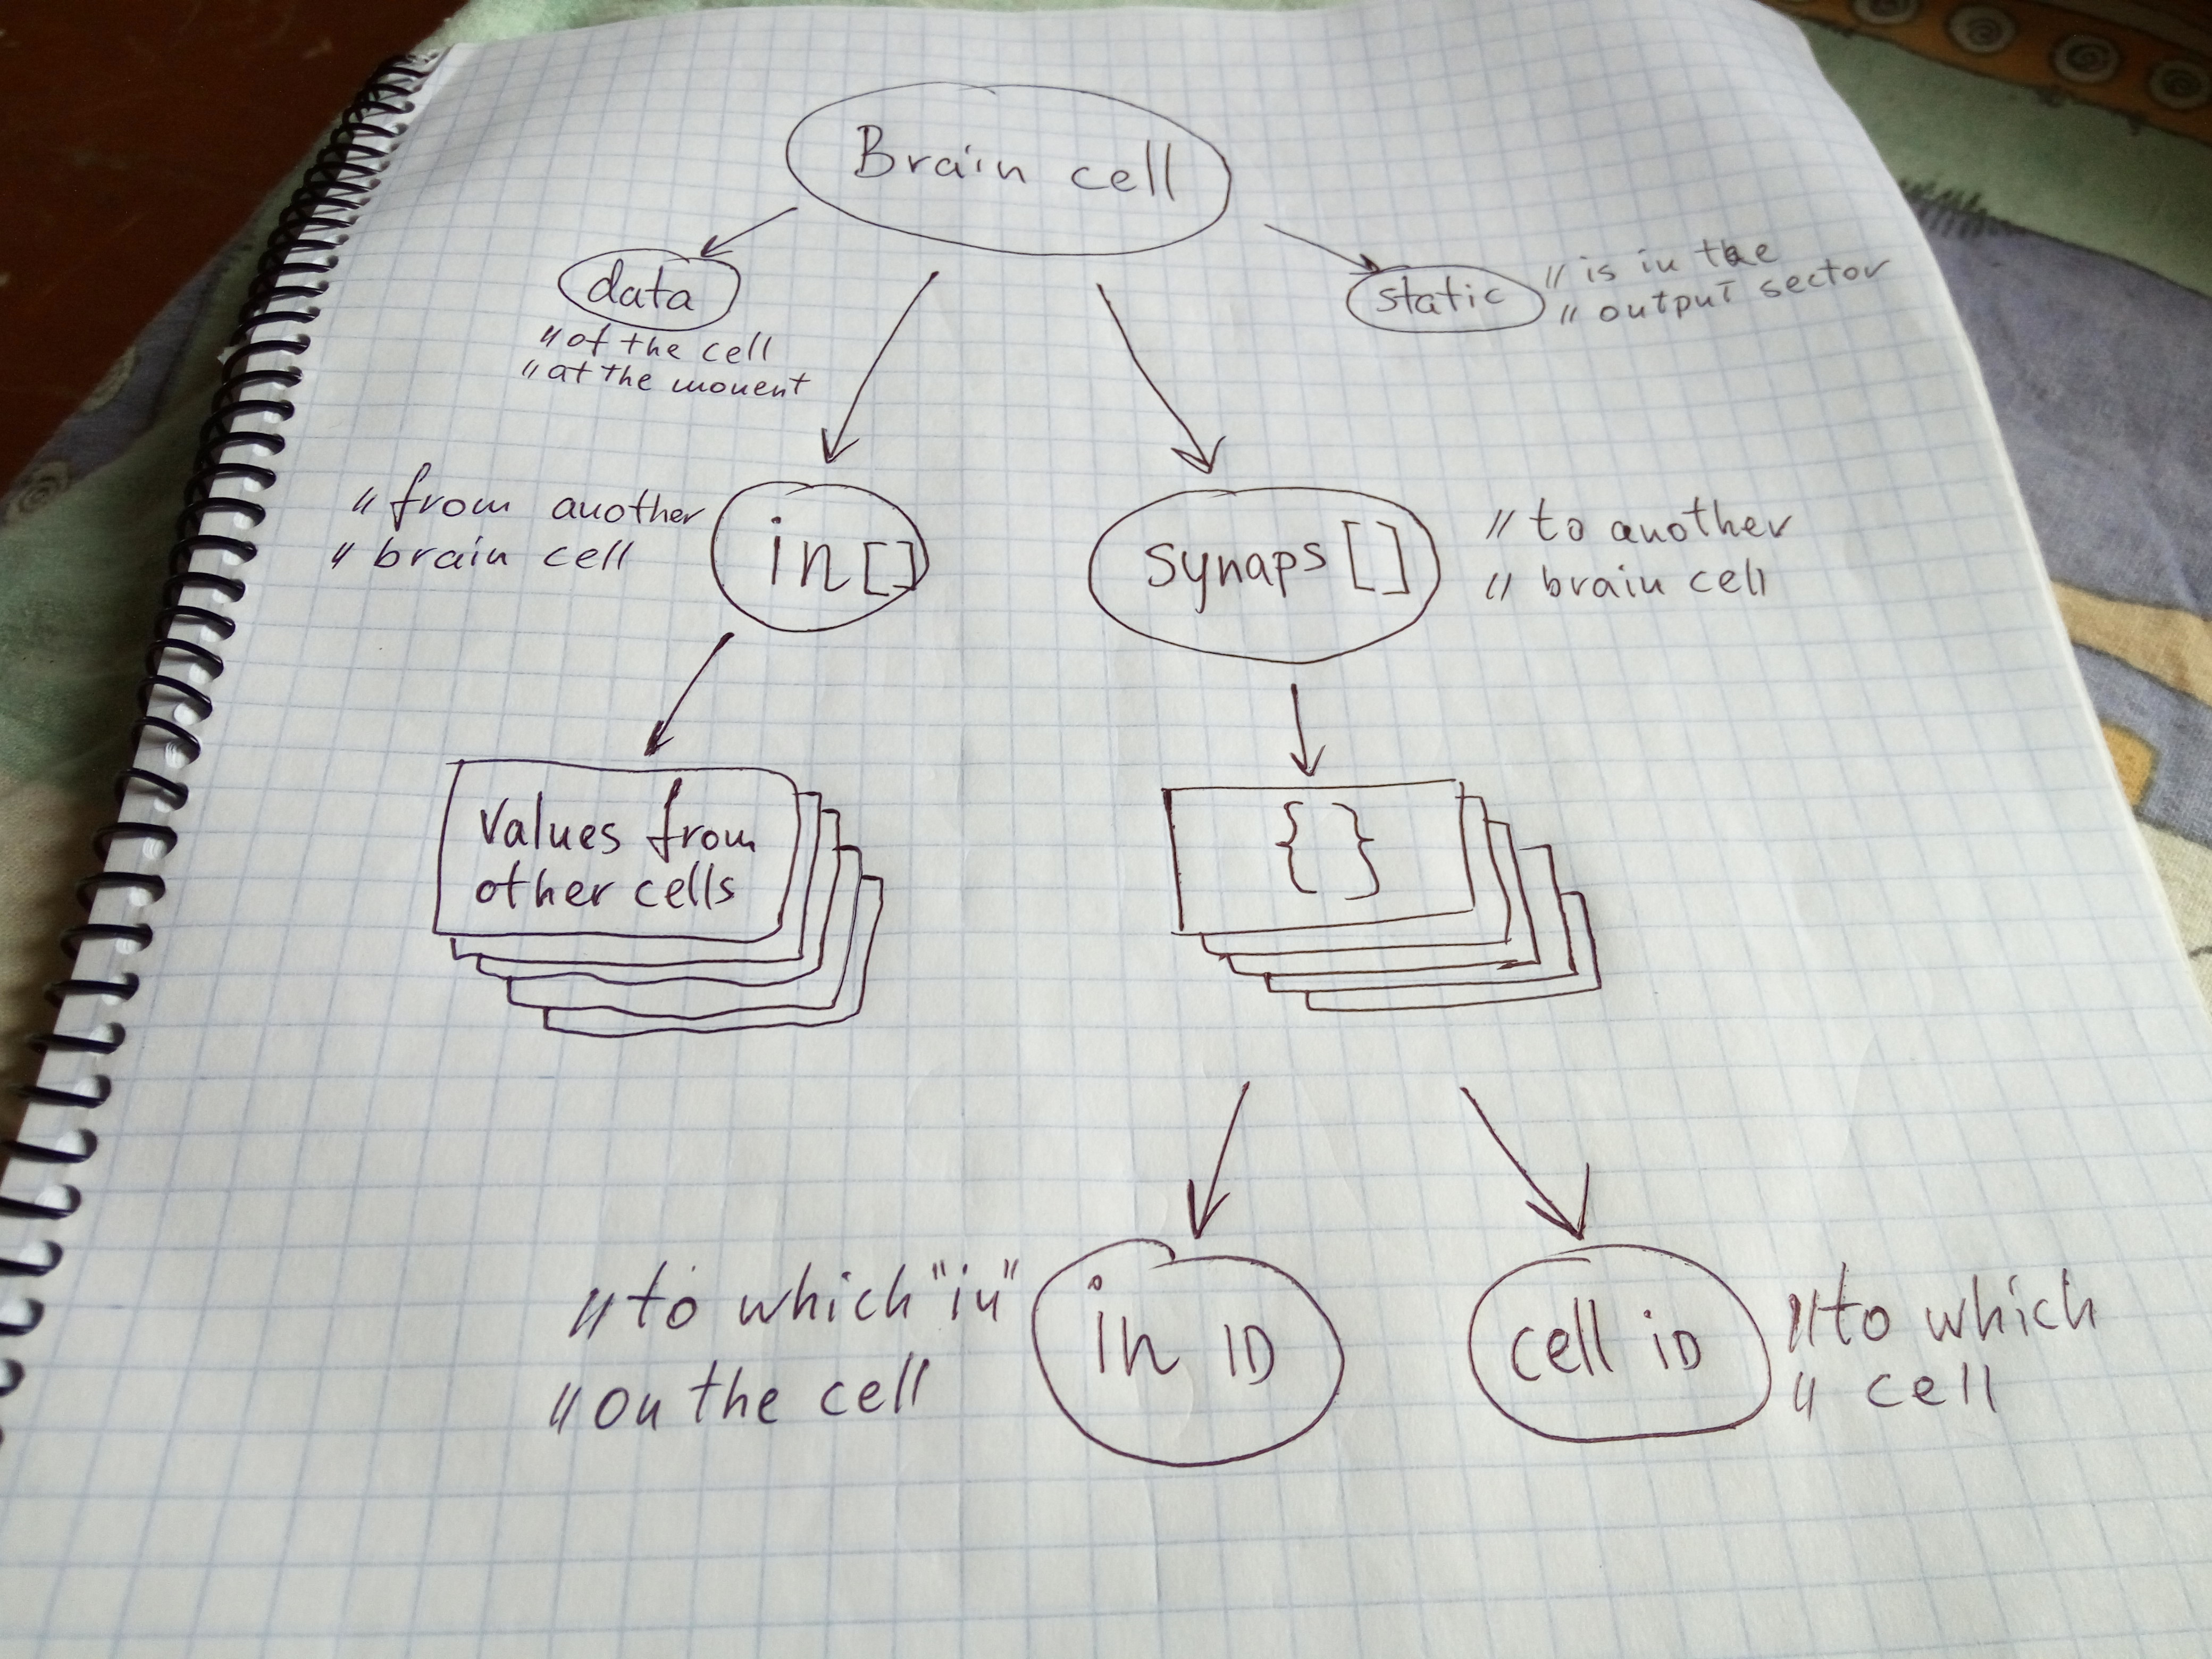 Brain cell
data
// of the cell
// at the moment
static
// is in the
// output sector
// from another
// brain cell
in[]
synaps []
// to another
// brain cell
Values from
other cells
{}
// to which "in"
// on the cell
in ID
cell iD
// to which
// cell